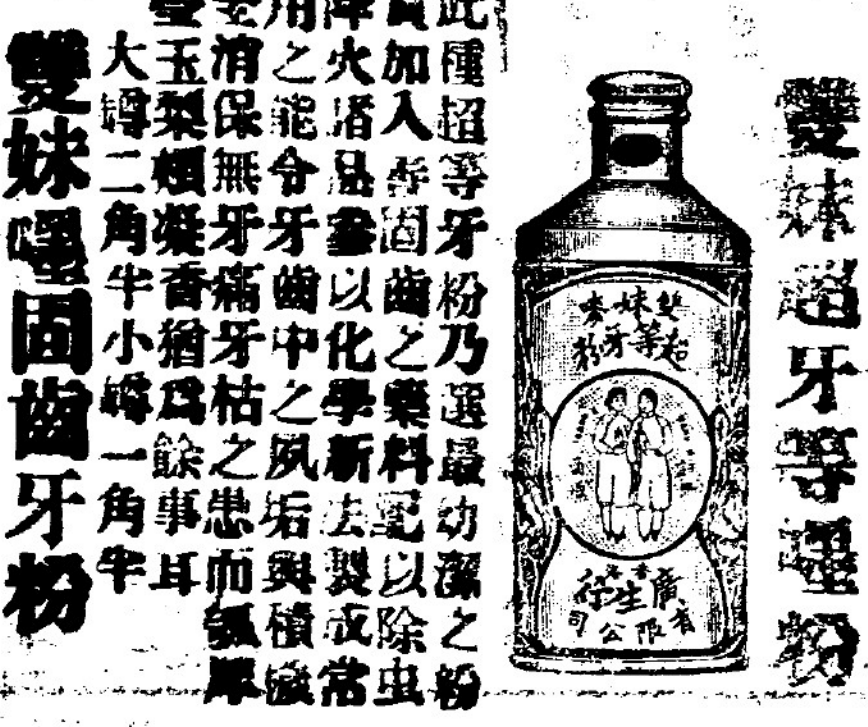 雙妹超牙等嚜粉
雙妹嚜
超等牙粉
香港
廣生行
有限公司
此種超等牙粉乃選最幼潔之粉
質加入香固齒之藥料配以除虫
降火諸品參以化學新法製成常
用之能令牙齒中之夙垢與積穢
全消保無牙痛牙枯之患而瓠犀
疊玉梨頰凝香猶爲餘事耳
大罇二角半小罇一角半
雙妹嚜固齒牙粉